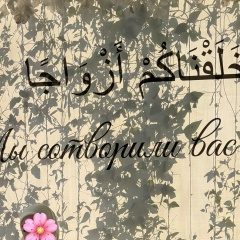 خَلَقْنَاكُمْ أَزْوَاجًا
Мы сотворили вас